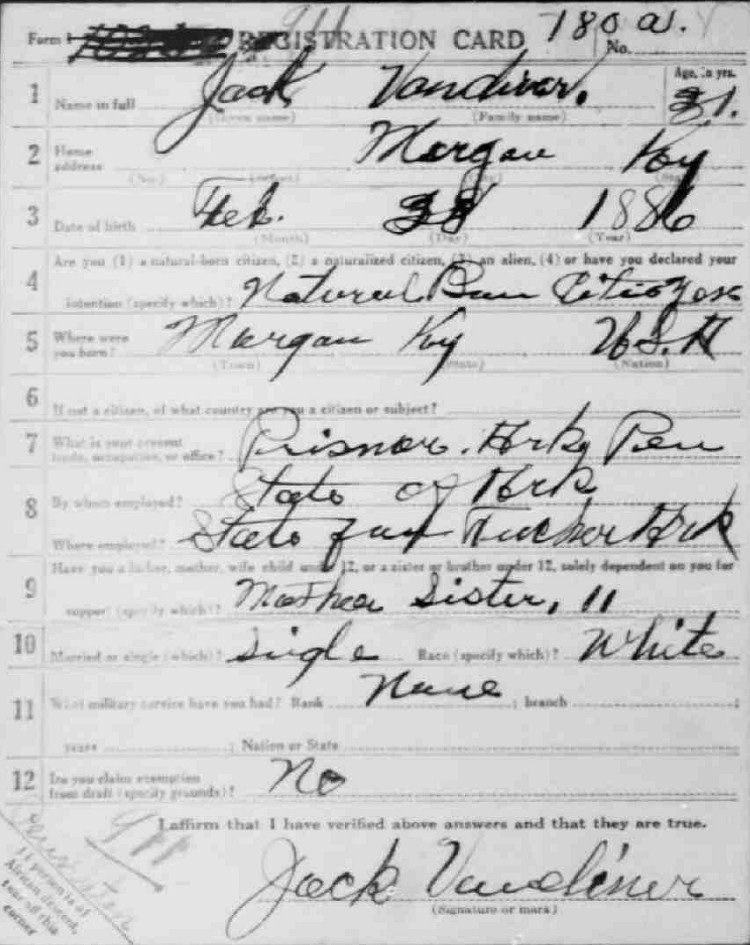 Form 1 REGISTRATION CARD 180 a.
No.
1 Name in full Jack Vandiver. Age, in yrs. 31.
(Given name) (Family name)
2 Home address Morgan Ky
(No.) (Street) (City) (State)
3 Date of birth Feb. 28 1886
(Month) (Day) (Year)
4 Are you (1) a natural-born citizen, (2) a naturalized citizen, (3) an alien, (4) or have you declared your
intention (specify which)? Natural Bun Citiozen
5 Where were you born? Morgan Ky U.S.A
(Town) (State) (Nation)
6 If not a citizen, of what country are you a citizen or subject?
7 What is your present trade, occupation, or office? Prisnor. Ark Pen
8 By whom employed? State of Ark
Where employed? State farm Tucker Ark
9 Have you a father, mother, wife child under 12, or a sister or brother under 12, solely dependent on you for
support (specify which)? Mother Sister, 11
10 Married or single (which)? Single Race (specify which)? White
11 What military service have you had? Rank None ; branch ;
years ; Nation or State
12 Do you claim exemption from draft (specify grounds)? No
I affirm that I have verified above answers and that they are true.
Jack Vandiver
(Signature or mark)
If person is of
African descent,
tear off this
corner